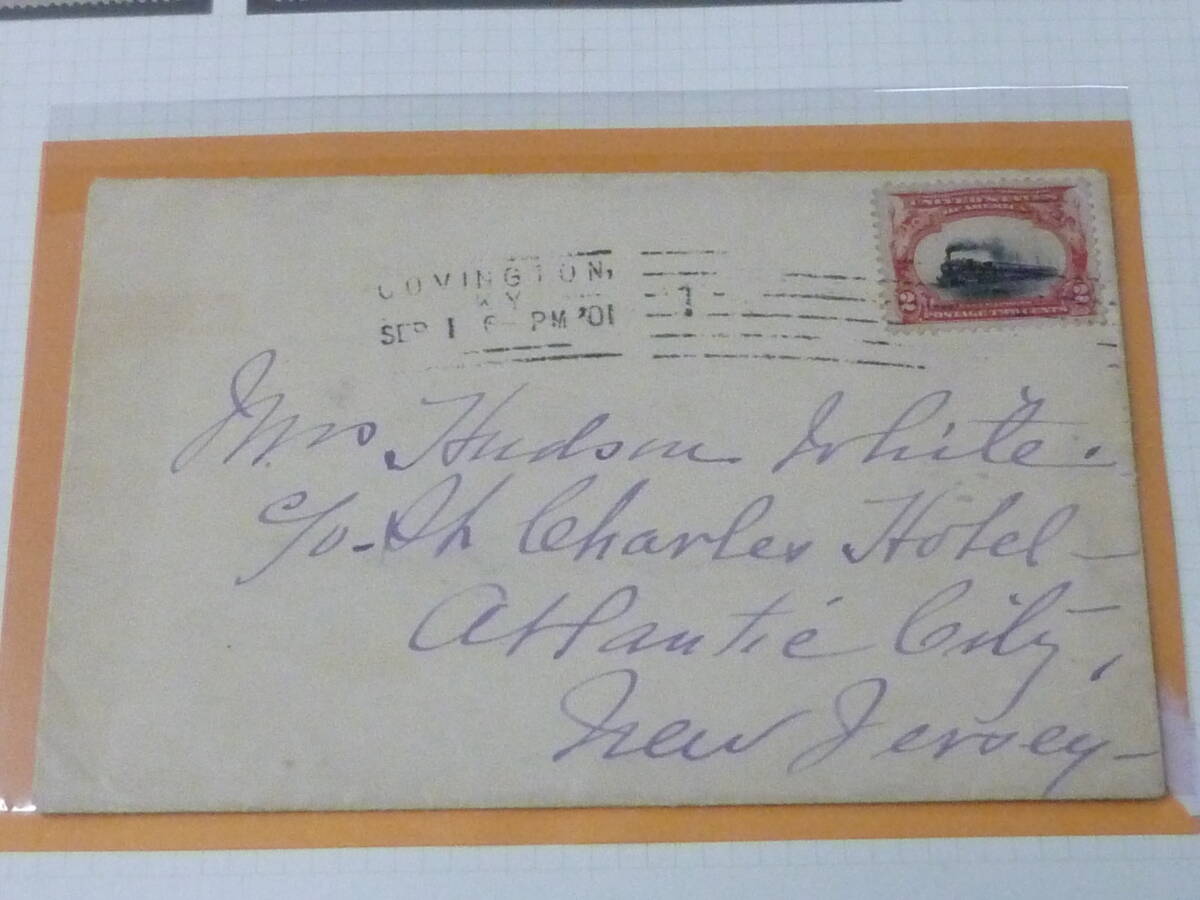 UNITED STATES
OF AMERICA
2 2
POSTAGE TWO CENTS
COVINGTON,
KY
SEP 1 6 - PM '01
1
Mrs Hudson White.
c/o - St Charles Hotel -
Atlantic City,
New Jersey -